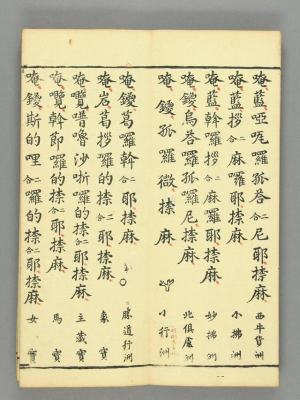 唵藍啞㖿囉孤苔二合尼耶捺麻 西牛貨洲
唵藍拶二合麻囉耶捺麻 小拂洲
唵藍斡囉拶二合麻囉耶捺麻 妙拂洲
唵鑁烏苔囉孤囉尼捺麻 北俱盧洲
唵鑁孤囉微捺麻 小行洲
唵鑁葛囉斡二合耶捺麻 勝道行洲
唵岌葛拶囉的捺二合耶捺麻 象寶
唵囕嚕沙折囉的捺二合耶捺麻 主藏寶
唵囕斡節囉的捺二合耶捺麻 馬寶
唵鑁斯的哩二合囉的捺二合耶捺麻 女寶